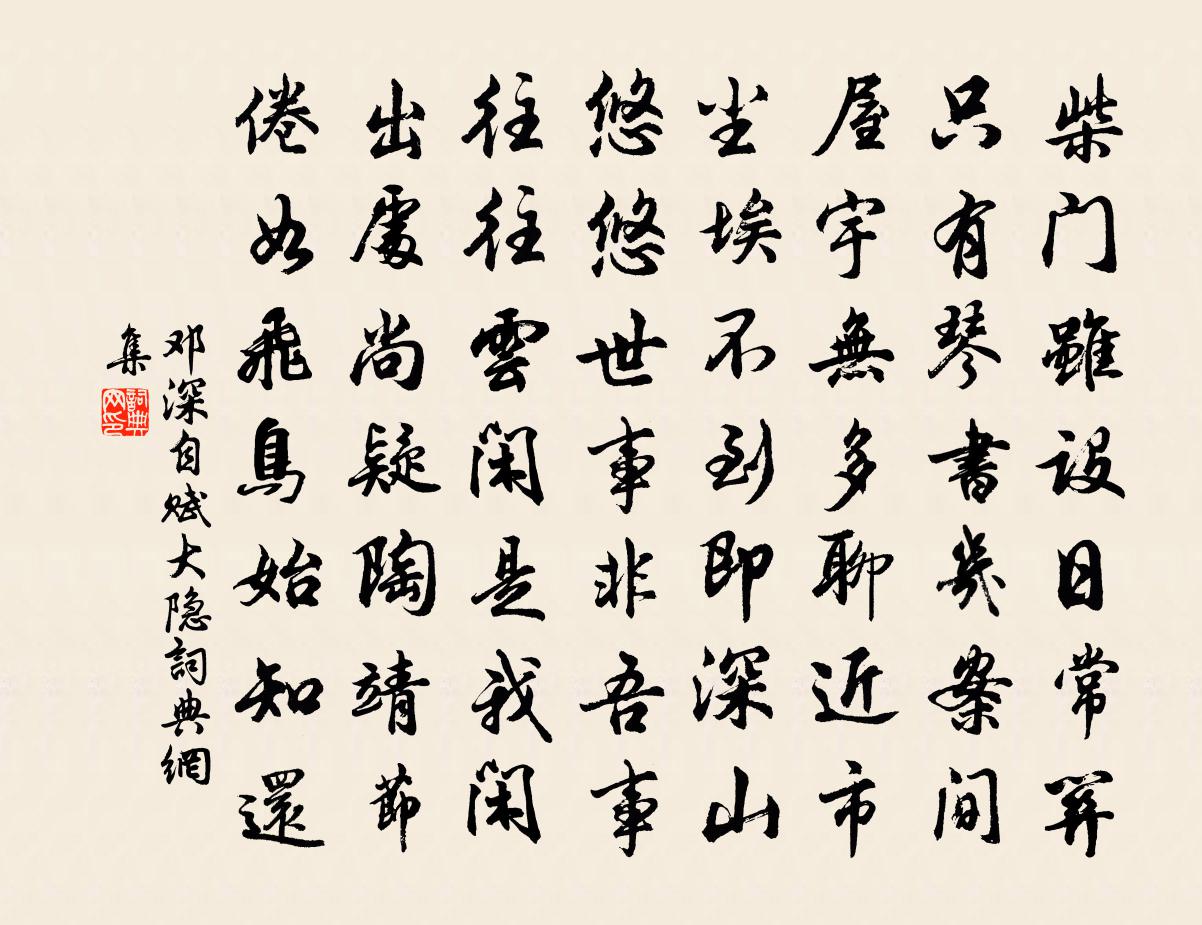 柴门雖设日常關
只有琴書幾案间
屋宇無多聊近市
尘埃不到即深山
悠悠世事非吾事
往往雲闲是我闲
出處尚疑陶靖節
倦如飛鳥始知還
邓深自赋大隐詞典網
集
詞典网印